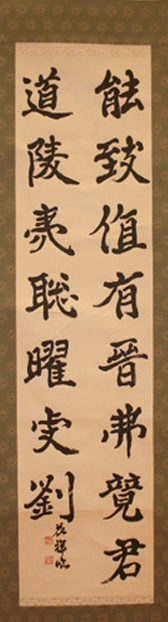 能致值有晉弗競君
道陵夷聡曜虔劉